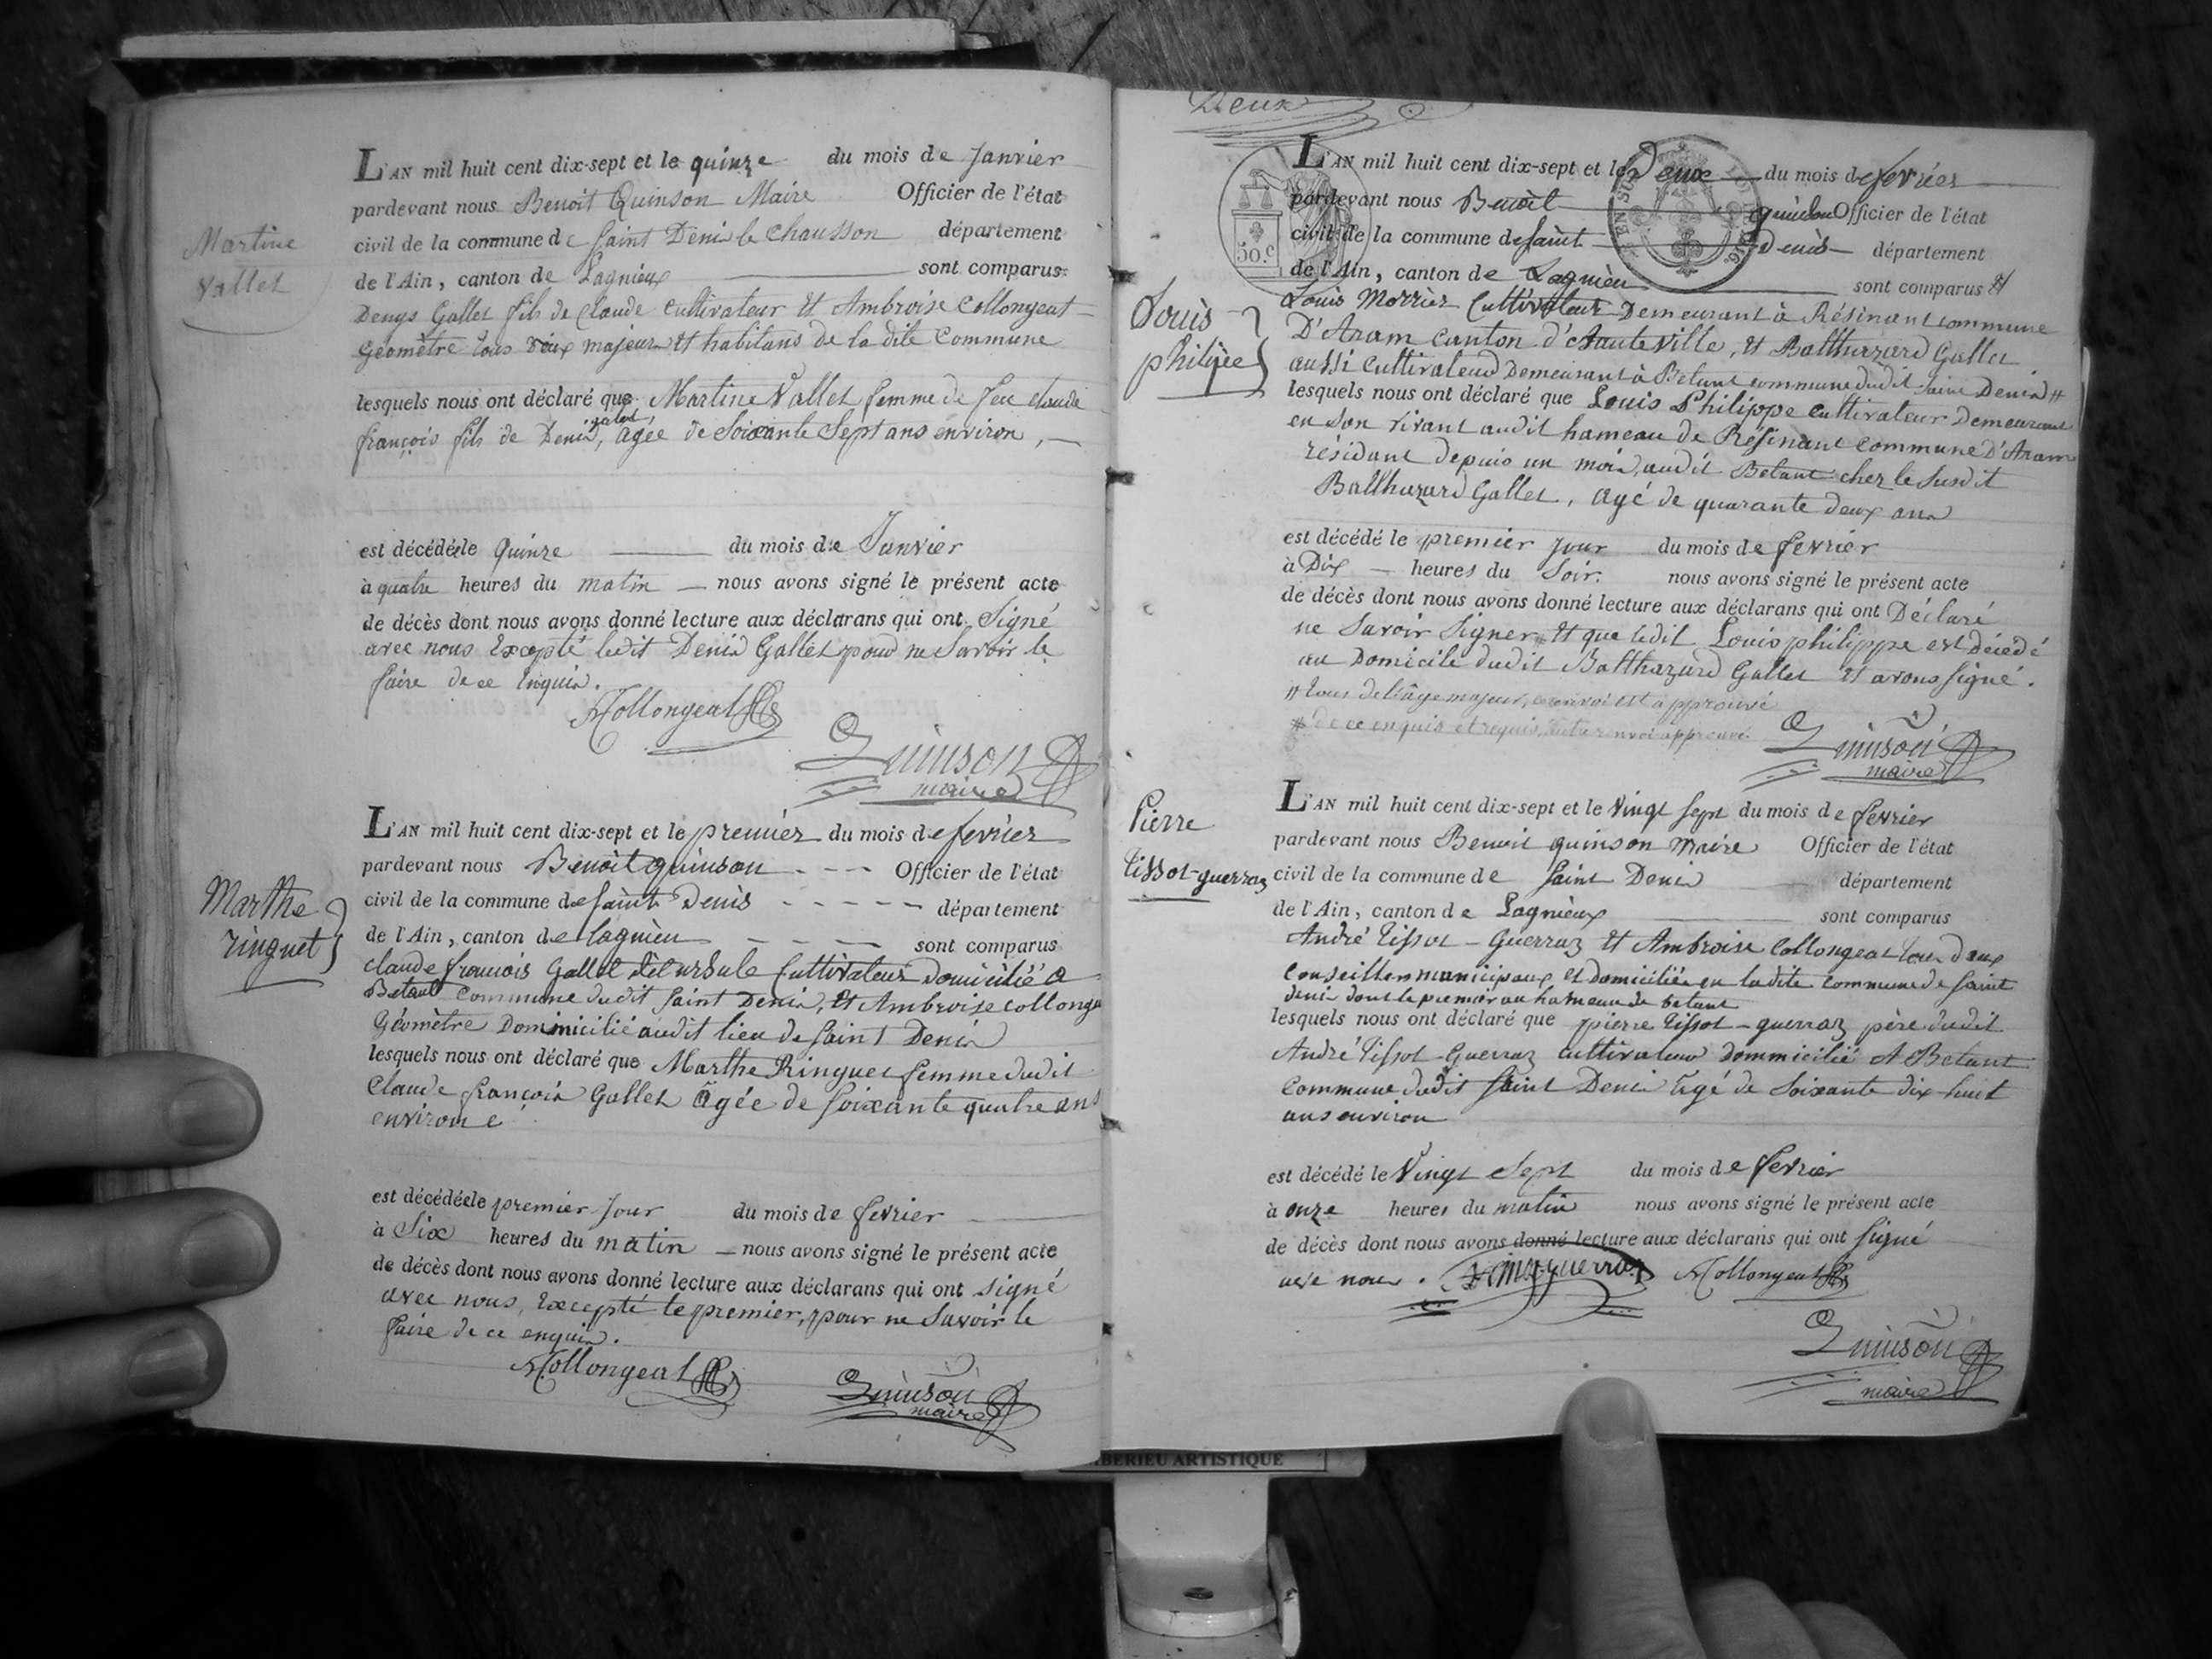 Martine
Vallet
L'AN mil huit cent dix-sept et le quinze du mois de Janvier
pardevant nous Benoit Quinson Maire Officier de l'état
civil de la commune de Saint Denis le Chausson département
de l'Ain, canton de Lagnieux sont comparus
Denys Gallet fils de Claude Cultivateur et Ambroise Collongeat
Géomètre tous deux majeurs et habitans de la dite Commune
lesquels nous ont déclaré que Martine Vallet femme de feu Claude
françois fils de Denis, Agée de Soixante Sept ans environ,
est décédée le Quinze du mois de Janvier
à quatre heures du matin nous avons signé le présent acte
de décès dont nous avons donné lecture aux déclarans qui ont Signé
avec nous Excepté ledit Denis Gallet pour ne Savoir le
faire de ce Enquis.
ACollongeat
Quinson
maire
Marthe
ringuet
L'AN mil huit cent dix-sept et le premier du mois de fevrier
pardevant nous Benoit quinson Officier de l'état
civil de la commune de Saint Denis département
de l'Ain, canton de lagnieu sont comparus
claude francois Gallet Cultivateur Domicilié a
Betant Commune dudit Saint Denis, Et Ambroise collonge
Géomètre Dominicilié audit lieu de Saint Denis
lesquels nous ont déclaré que Marthe Ringuet femme dudit
Claude françois Gallet agée de Soixante quatre ans
environ
est décédée le premier Jour du mois de fevrier
à Six heures du matin nous avons signé le présent acte
de décès dont nous avons donné lecture aux déclarans qui ont signé
avec nous, Excepté le premier, pour ne Savoir le
faire de ce enquis.
ACollongeat
Quinson
maire
Deux
50.c
L'AN mil huit cent dix-sept et le Deux du mois de fevrier
pardevant nous Benoit quinson Officier de l'état
civil de la commune de Saint Denis département
de l'Ain, canton de Lagnieu sont comparus
Louis
philipe
Louis Morrier Cultivateur Demeurant à Résinant commune
D'Aram Canton d'hauteville, Et Balthazard Gallet
aussi Cultivateur Demeurant à Betant commune dudit Saint Denis #
lesquels nous ont déclaré que Louis Philippe cultivateur Demeurant
en Son vivant audit hameau de Résinant commune D'Aram
résidant depuis un mois, audit Betant chez le Susdit
Balthazard Gallet, Agé de quarante deux ans
est décédé le premier Jour du mois de fevrier
à Dix heures du Soir. nous avons signé le présent acte
de décès dont nous avons donné lecture aux déclarans qui ont Déclaré
ne Savoir Signer # Et que ledit Louis philippe est Décédé
au Domicile dudit Balthazard Gallet Et avons signé.
# tous de l'âge majeur, renvoi est approuvé
# de ce enquis et requis, autre renvoi approuvé
Quinson
maire
Pierre
Tissot-guerraz
L'AN mil huit cent dix-sept et le Vingt Sept du mois de fevrier
pardevant nous Benoit quinson Maire Officier de l'état
civil de la commune de Saint Denis département
de l'Ain, canton de Lagnieux sont comparus
André Tissot-Guerraz Et Ambroise Collongeat tous Deux
Conseillers municipaux et Domiciliés en ladite commune de Saint
denis dont le premier au hameau de betant
lesquels nous ont déclaré que pierre Tissot-guerraz père dudit
André Tissot-Guerraz cultivateur Dommicilié A Betant
Commune dudit Saint Denis Agé de Soixante dix-huit
ans environ
est décédé le Vingt Sept du mois de fevrier
à onze heures du matin nous avons signé le présent acte
de décès dont nous avons donné lecture aux déclarans qui ont Signé
avec nous. ACollongeat
Quinson
maire
BERIEU ARTISTIQUE